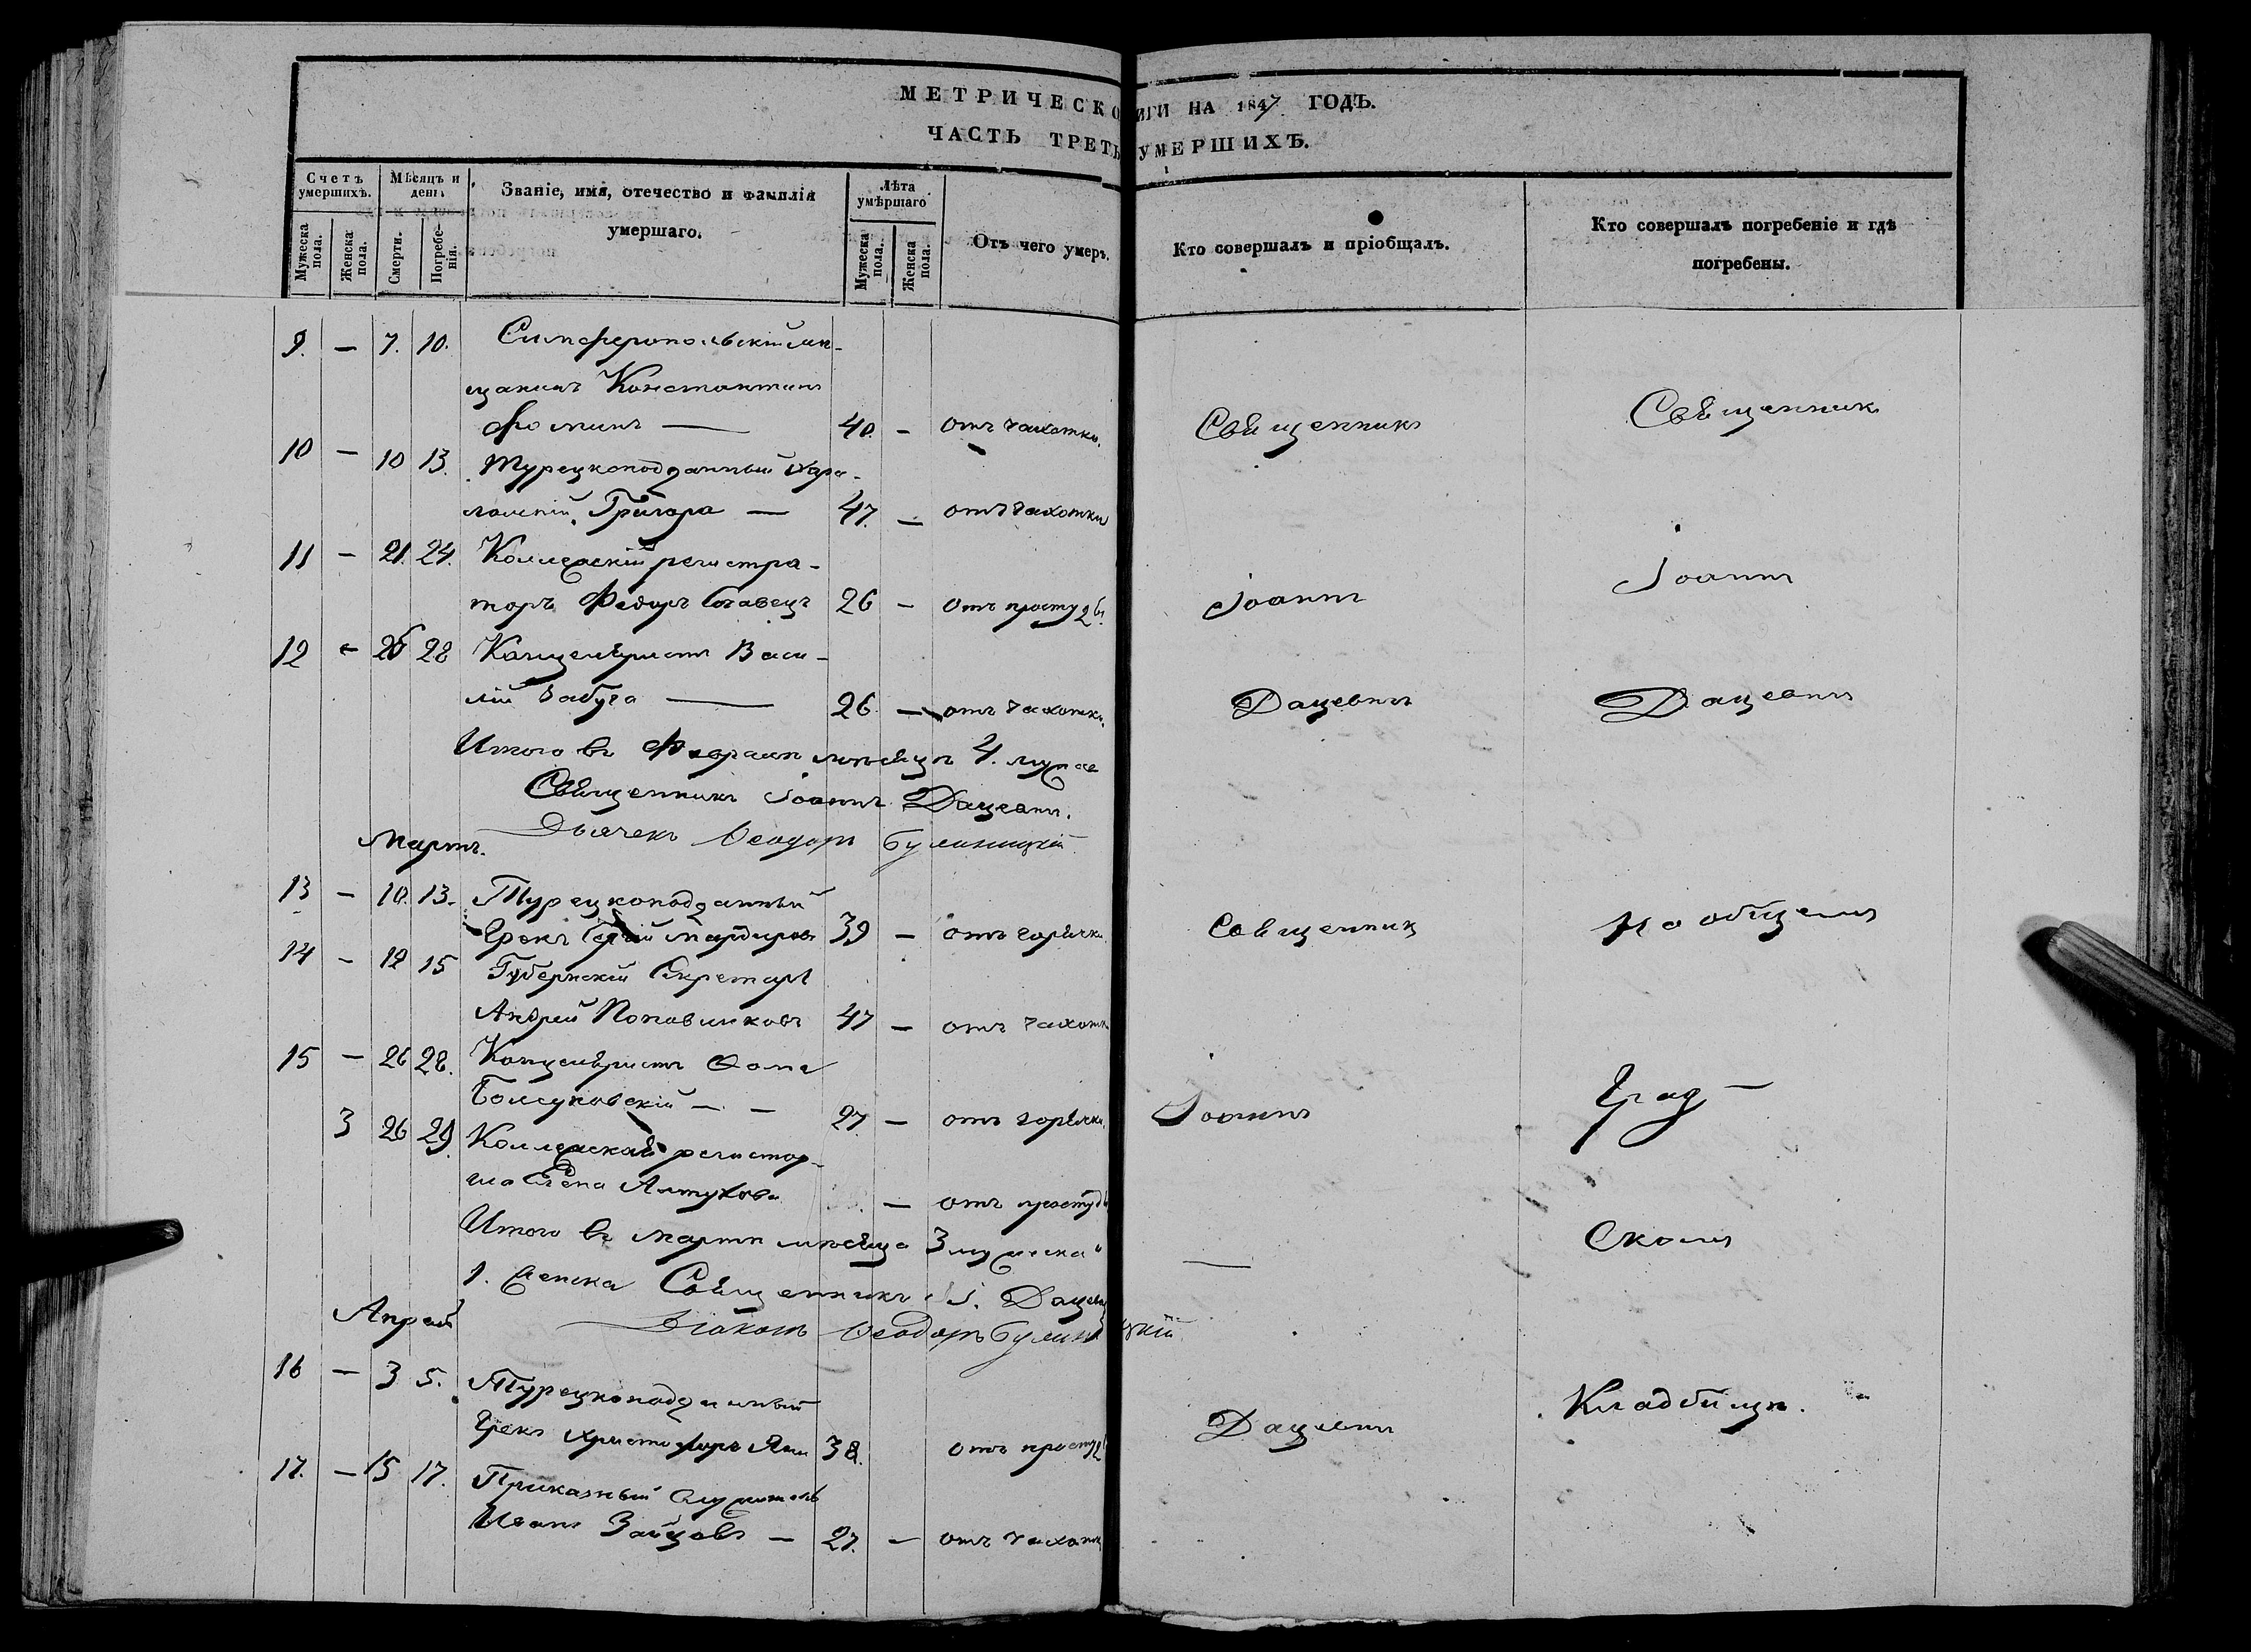 МЕТРИЧЕСКО ИГИ НА 1847 ГОДЪ.
ЧАСТЬ ТРЕТЬ УМЕРШИХЪ.
Счетъ умершихъ.
Мужеска пола.
Женска пола.
Мѣсяцъ и день
Смерти.
Погребенія.
Званіе, имя, отечество и фамилія
умершаго.
Лѣта умѣршаго
Мужеска пола.
Женска пола.
Отъ чего умеръ.
Кто совершалъ и пріобщалъ.
Кто совершалъ погребеніе и гдѣ
погребены.
9. — 7. 10. Симферопольскій мѣ-
щанинъ Константинъ
Фоминъ — 40. — отъ чахотки.
10 — 10 13. Турецкоподданный Хара-
лампій Григора — 47. — отъ чахотки
11 — 21. 24. Коллежскій регистра-
торъ Федоръ 26 — отъ простуды
12 — 26 28 Канцеляристъ Васи-
лій 26. — отъ чахотки.
Итого въ Февралѣ мѣсяцѣ 4. муже
Священникъ Іоаннъ Дацевичъ.
Дьячекъ Ѳеодоръ
Священникъ
Іоаннъ
Дацевичъ
Священникъ
Іоаннъ
Дацевичъ
Мартъ.
13 — 10. 13. Турецкоподданный
Грекъ 39 — отъ горячки
14 — 12 15 Губернскій Секретарь
Андрей Поповниковъ 47 — отъ чахотк
15 — 26 28. Канцеляристъ Ѳома
27. — отъ горячки.
3 26 29. Коллежская регистор-
ша Елена Алтухова — отъ простуды
Итого въ Мартѣ мѣсяцѣ 3 мужеска
1. женска Священникъ І. Дацевич
Діаконъ Ѳеодоръ
Апрель
16 — 3 5. Турецкоподданный
Грекъ Христофоръ Яни 38. отъ простуд
17. — 15 17. Приказный служитель
Иванъ Зайцовъ — 27. — отъ чахотк
Священник
Іоаннъ
—
Дацевичъ
На общемъ
Град-
скомъ
Кладбищѣ.